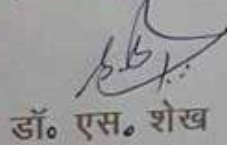 डॉ॰ एस॰ शेख